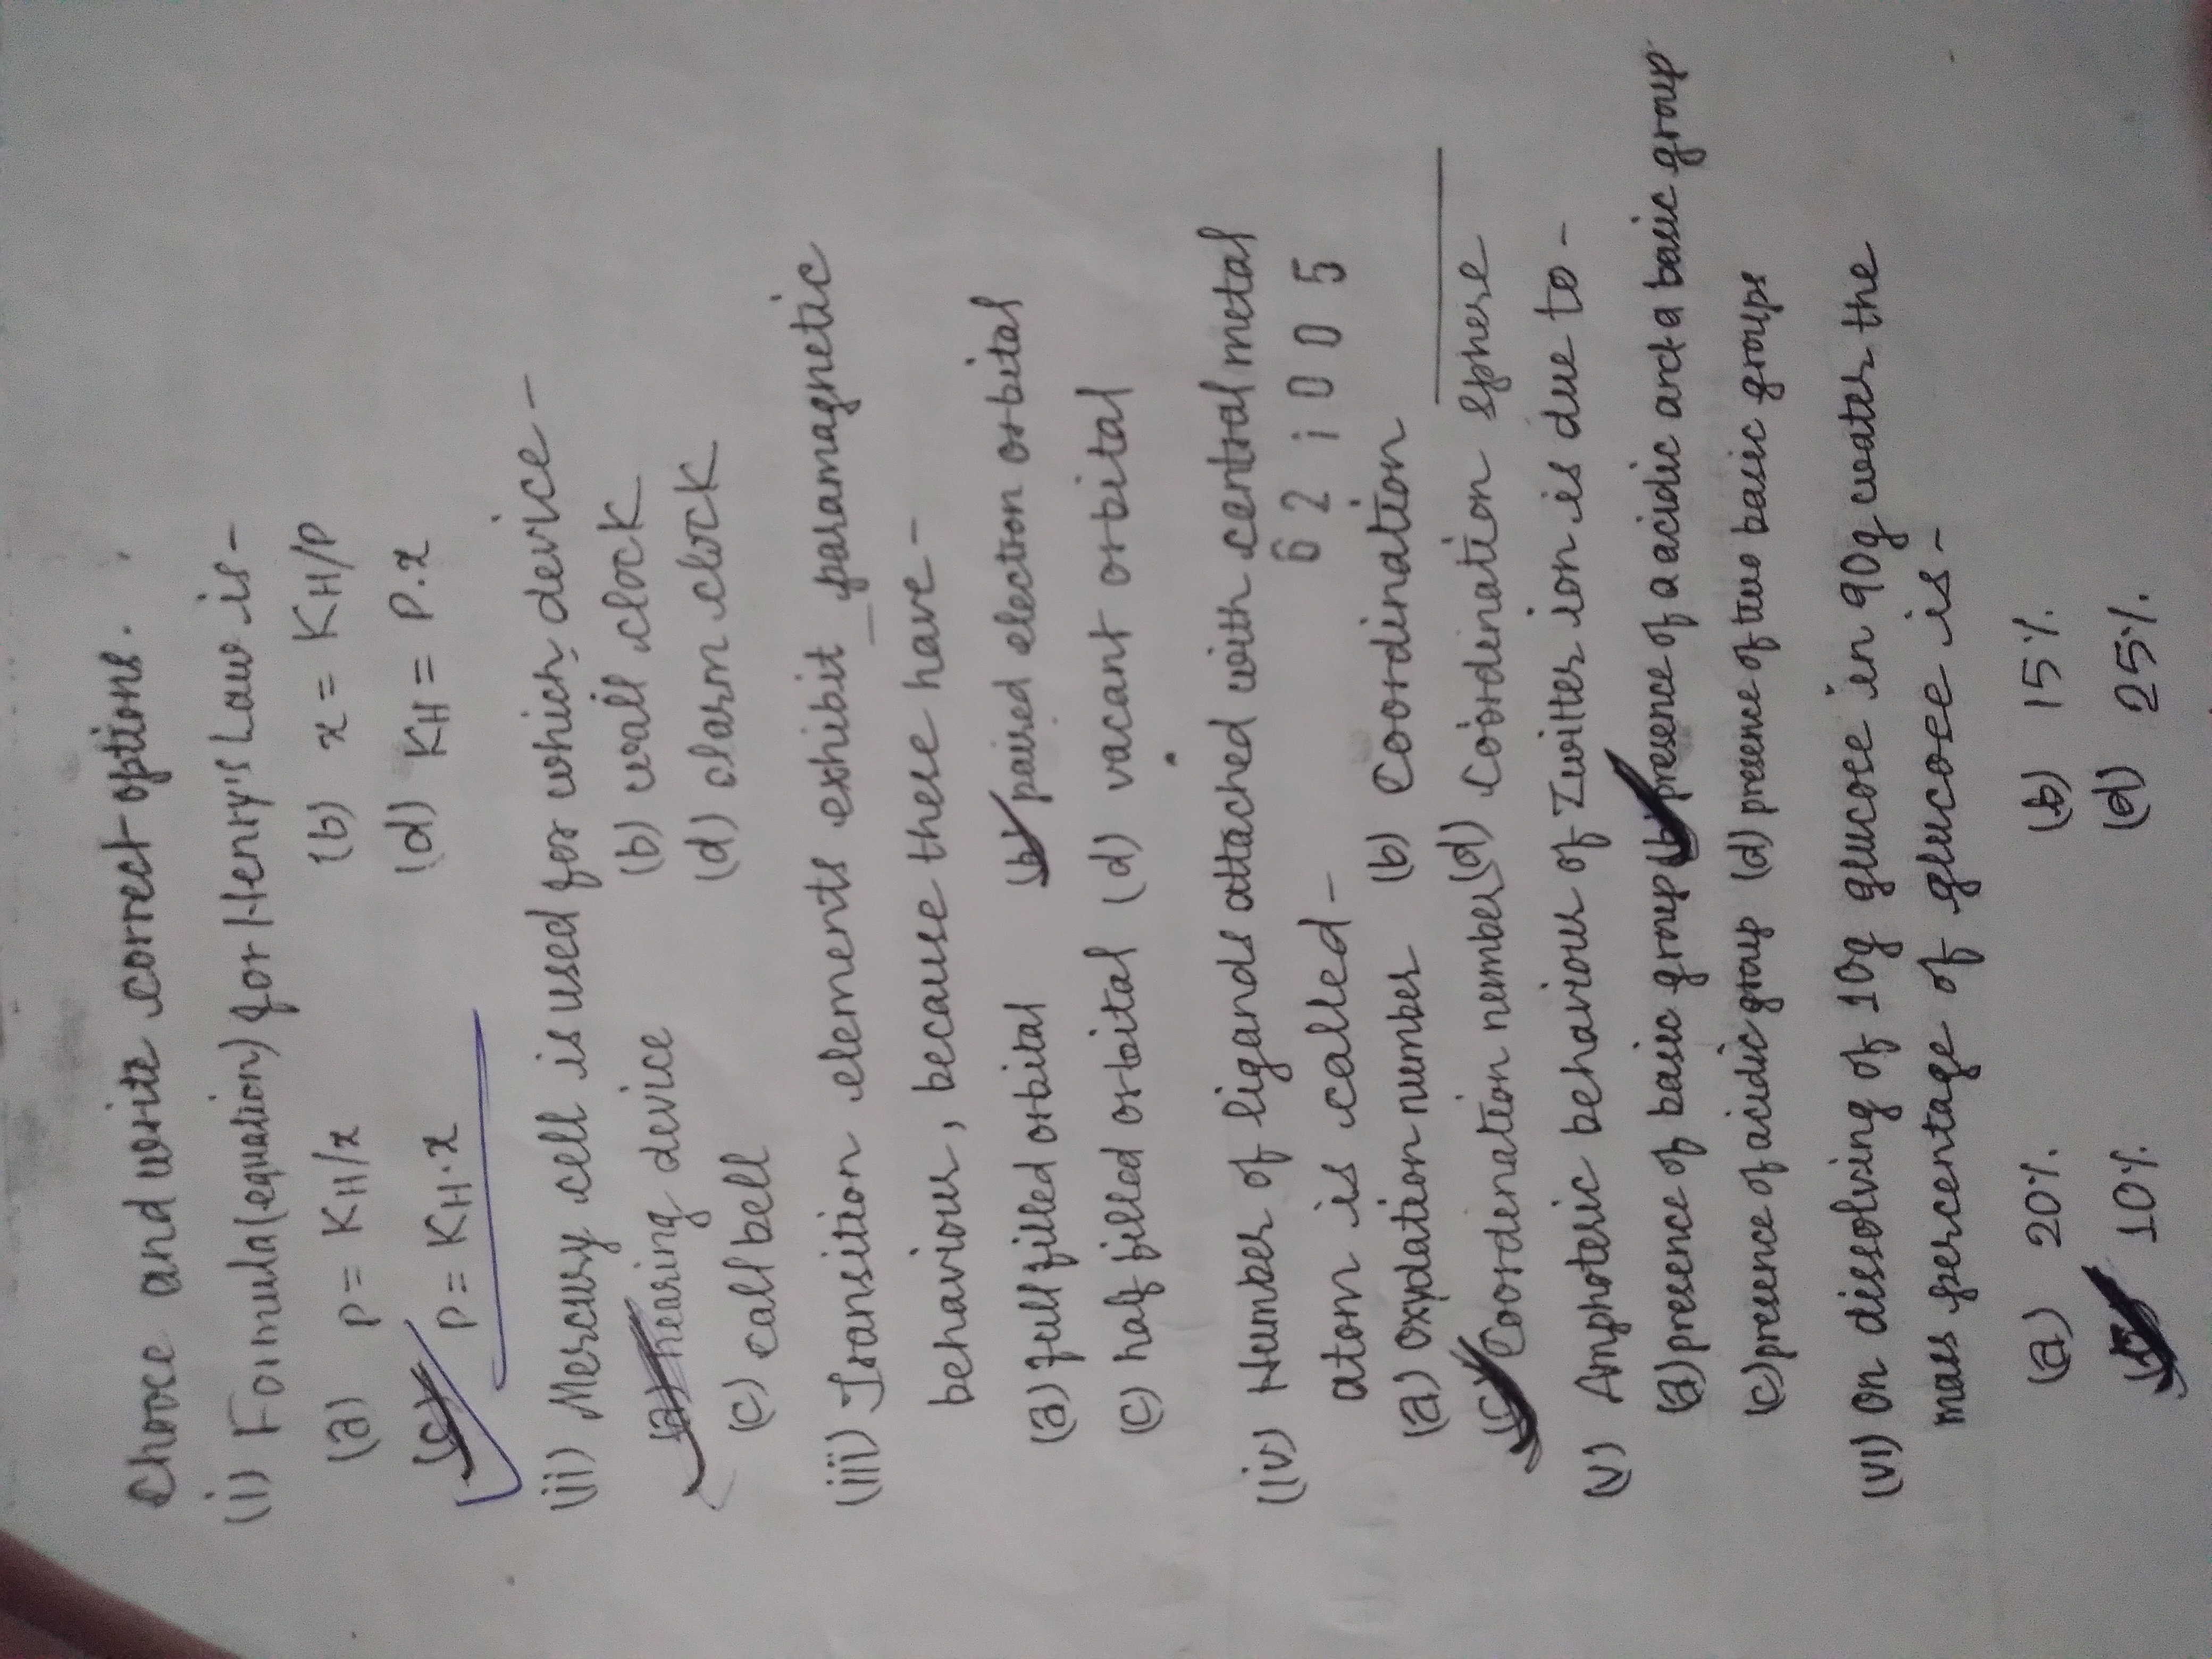 Choose and write correct options.
(i) Formula(equation) for Henry's Law is-
(a) P = KH/x (b) x = KH/P
(c) P = KH.x (d) KH = P.x
(ii) Mercury cell is used for which device-
(a) hearing device (b) wall clock
(c) call bell (d) alarm clock
(iii) Transition elements exhibit paramagnetic
behaviour, because these have-
(a) full filled orbital (b) paired electron orbital
(c) half filled orbital (d) vacant orbital
(iv) Number of ligands attached with central metal
atom is called-
6 2 1 0 0 5
(a) oxydation number (b) Coordination
(c) Coordenation number (d) Coordination sphere
(v) Amphoteric behaviour of Zwitter ion is due to-
(a) presence of basic group (b) presence of a acidic and a basic group
(c) presence of acidic group (d) presence of two basic groups
(vi) On dissolving of 10g glucose in 90g water the
mass percentage of glucose is-
(a) 20% (b) 15%
(c) 10% (d) 25%